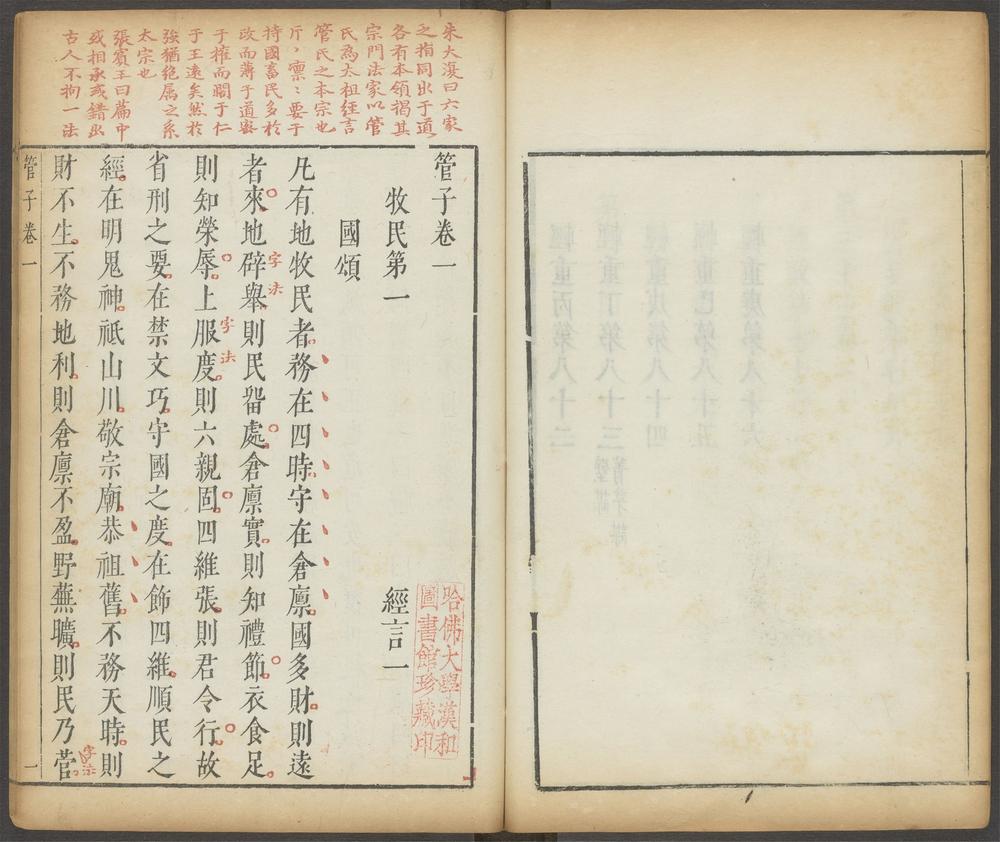 朱大復曰六家
之指同出于道
各有本領揭其
宗門法家以管
氏為太祖經言
管氏之本宗也
斤〻禀〻要于
持國畜民多於
政而薄于道密
于權而闊于仁
于王遠矣然於
強猶絶属之系
太宗也
張賓王曰篇中
或相承或錯出
古人不拘一法
管子卷一
牧民第一 經言一
國頌
凡有地牧民者務在四時守在倉廩國多財則遠
者來地辟舉則民畱處倉廩實則知禮節衣食足
則知榮辱上服度則六親固四維張則君令行故
省刑之要在禁文巧守國之度在飾四維順民之
經在明鬼神祗山川敬宗廟恭祖舊不務天時則
財不生不務地利則倉廩不盈野蕪曠則民乃菅
字法
字法
字法
管子卷一 一
哈佛大學漢和
圖書館珍藏印